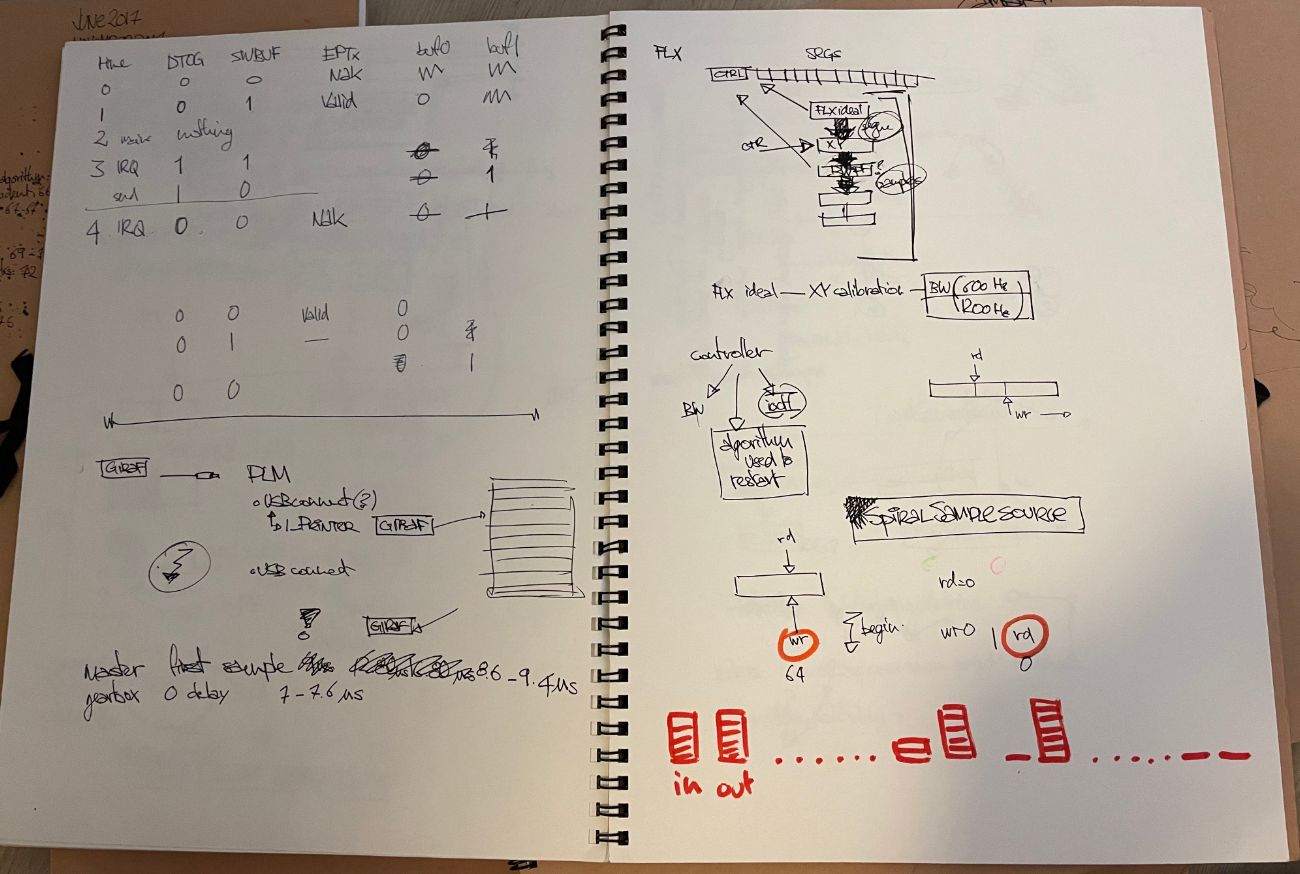 JUNE 2017
time DTOG SWBUF EPTx buf0 buf1
0 0 0 Nak
1 0 1 Valid 0
2 nothing
3 IRQ 1 1 0
send 1 0 0 1
4 IRQ 0 0 Nak 0 1
0 0 Valid 0
0 1 — 0
1
0 0
GIRAF PLM
USB connect (?)
I_PRINTER GIRAF
USB connect
!
GIRAF
Master first sample 8.6 – 9.4 µs
gearbox 0 delay 7 – 7.6 µs
FLX SEGS
CTRL
FLX ideal
segue
CTR XY
?
samples
FLX ideal — XY calibration — BW (600 Hz
1200 Hz)
controller
rd
BW ioctl
wr
algorithm
used to
restart
SPIRAL SAMPLE SOURCE
rd
rd=0
wr begin. wr0 1 rd
64 0
in out